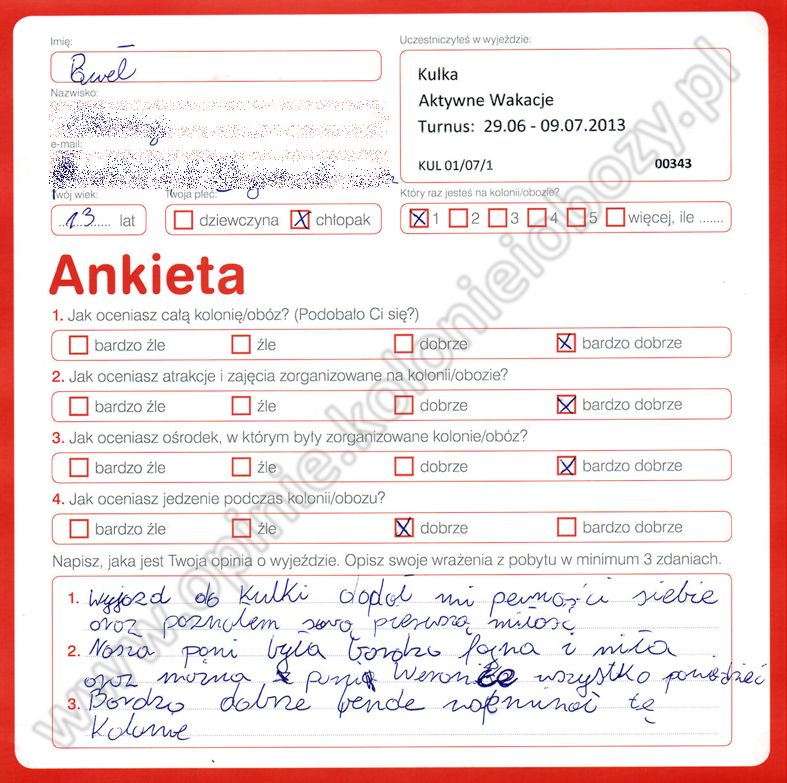 Imię:
Paweł
Uczestniczyłeś w wyjeździe:
Kulka
Aktywne Wakacje
Turnus: 29.06 - 09.07.2013
KUL 01/07/1 00343
Nazwisko:
e-mail:
Twój wiek:
13 lat
Twoja płeć:
dziewczyna x chłopak
Który raz jesteś na kolonii/obozie?
x 1 2 3 4 5 więcej, ile .......
Ankieta
1. Jak oceniasz całą kolonię/obóz? (Podobało Ci się?)
bardzo źle źle dobrze x bardzo dobrze
2. Jak oceniasz atrakcje i zajęcia zorganizowane na kolonii/obozie?
bardzo źle źle dobrze x bardzo dobrze
3. Jak oceniasz ośrodek, w którym były zorganizowane kolonie/obóz?
bardzo źle źle dobrze x bardzo dobrze
4. Jak oceniasz jedzenie podczas kolonii/obozu?
bardzo źle źle x dobrze bardzo dobrze
Napisz, jaka jest Twoja opinia o wyjeździe. Opisz swoje wrażenia z pobytu w minimum 3 zdaniach.
1. Wyjazd do Kulki dodał mi pewności siebie
oraz poznałem swą pierwszą miłość
2. Nasza pani była bardzo fajna i miła
oraz można pani Weronice wszystko powiedzieć
3. Bardzo dobrze bende wspminać tę
Kolonie
www.opinie.kolonieiobozy.pl